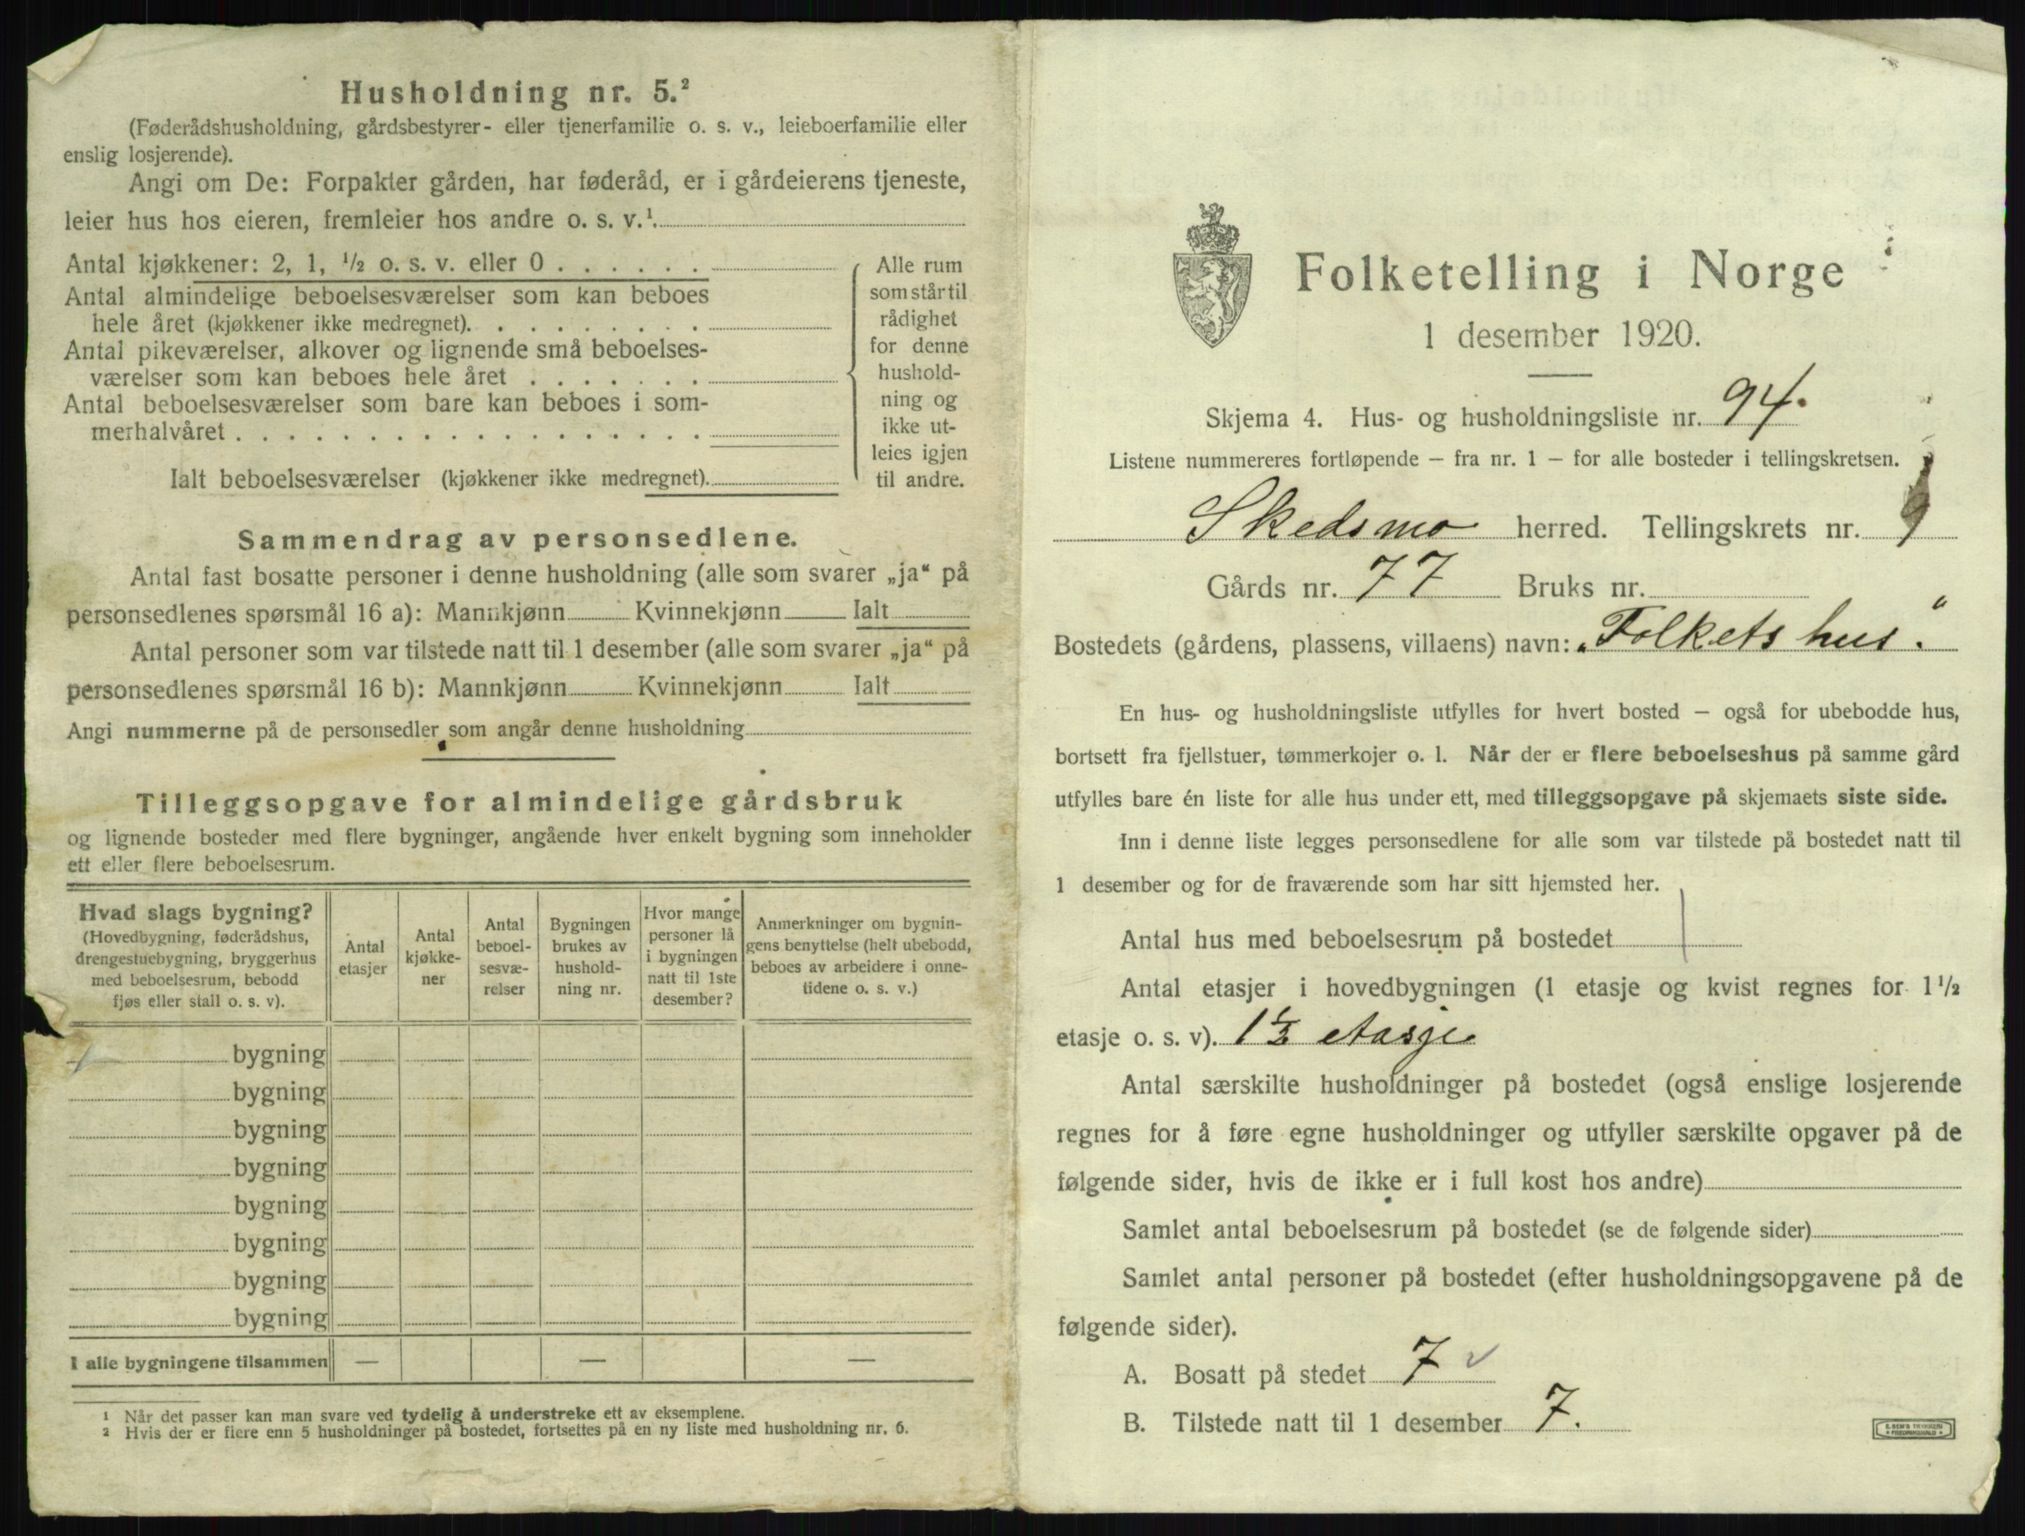 Husholdning nr. 5.²
(Føderådshusholdning, gårdsbestyrer- eller tjenerfamilie o. s. v., leieboerfamilie eller
enslig losjerende).
Angi om De: Forpakter gården, har føderåd, er i gårdeierens tjeneste,
leier hus hos eieren, fremleier hos andre o. s. v.¹
Antal kjøkkener: 2, 1, ½ o. s. v. eller 0 . . . . . .
Antal almindelige beboelsesværelser som kan beboes
hele året (kjøkkener ikke medregnet). . . . . . . . .
Antal pikeværelser, alkover og lignende små beboelses-
værelser som kan beboes hele året . . . . . . .
Antal beboelsesværelser som bare kan beboes i som-
merhalvåret . . . . . . . . . . . . . . . . . .
Ialt beboelsesværelser (kjøkkener ikke medregnet).
Alle rum
som står til
rådighet
for denne
hushold-
ning og
ikke ut-
leies igjen
til andre.
Sammendrag av personsedlene.
Antal fast bosatte personer i denne husholdning (alle som svarer „ja“ på
personsedlenes spørsmål 16 a): Mannkjønn Kvinnekjønn Ialt
Antal personer som var tilstede natt til 1 desember (alle som svarer „ja“ på
personsedlenes spørsmål 16 b): Mannkjønn Kvinnekjønn Ialt
Angi nummerne på de personsedler som angår denne husholdning
Tilleggsopgave for almindelige gårdsbruk
og lignende bosteder med flere bygninger, angående hver enkelt bygning som inneholder
ett eller flere beboelsesrum.
Hvad slags bygning?
(Hovedbygning, føderådshus,
drengestuebygning, bryggerhus
med beboelsesrum, bebodd
fjøs eller stall o. s. v).
Antal
etasjer
Antal
kjøkke-
ner
Antal
beboel-
sesvæ-
relser
Bygningen
brukes av
hushold-
ning nr.
Hvor mange
personer lå
i bygningen
natt til 1ste
desember?
Anmerkninger om bygnin-
gens benyttelse (helt ubebodd,
beboes av arbeidere i onne-
tidene o. s. v.)
bygning
bygning
bygning
bygning
bygning
bygning
bygning
bygning
I alle bygningene tilsammen — — —
¹ Når det passer kan man svare ved tydelig å understreke ett av eksemplene.
² Hvis der er flere enn 5 husholdninger på bostedet, fortsettes på en ny liste med husholdning nr. 6.
Folketelling i Norge
1 desember 1920.
Skjema 4. Hus- og husholdningsliste nr. 94.
Listene nummereres fortløpende – fra nr. 1 – for alle bosteder i tellingskretsen.
Skedsmo herred. Tellingskrets nr. 9
Gårds nr. 77 Bruks nr.
Bostedets (gårdens, plassens, villaens) navn: „Folkets hus.“
En hus- og husholdningsliste utfylles for hvert bosted – også for ubebodde hus,
bortsett fra fjellstuer, tømmerkojer o. l. Når der er flere beboelseshus på samme gård
utfylles bare én liste for alle hus under ett, med tilleggsopgave på skjemaets siste side.
Inn i denne liste legges personsedlene for alle som var tilstede på bostedet natt til
1 desember og for de fraværende som har sitt hjemsted her.
Antal hus med beboelsesrum på bostedet 1
Antal etasjer i hovedbygningen (1 etasje og kvist regnes for 1½
etasje o. s. v). 1½ etasje
Antal særskilte husholdninger på bostedet (også enslige losjerende
regnes for å føre egne husholdninger og utfyller særskilte opgaver på de
følgende sider, hvis de ikke er i full kost hos andre)
Samlet antal beboelsesrum på bostedet (se de følgende sider)
Samlet antal personer på bostedet (efter husholdningsopgavene på de
følgende sider).
A. Bosatt på stedet 7 v
B. Tilstede natt til 1 desember 7.